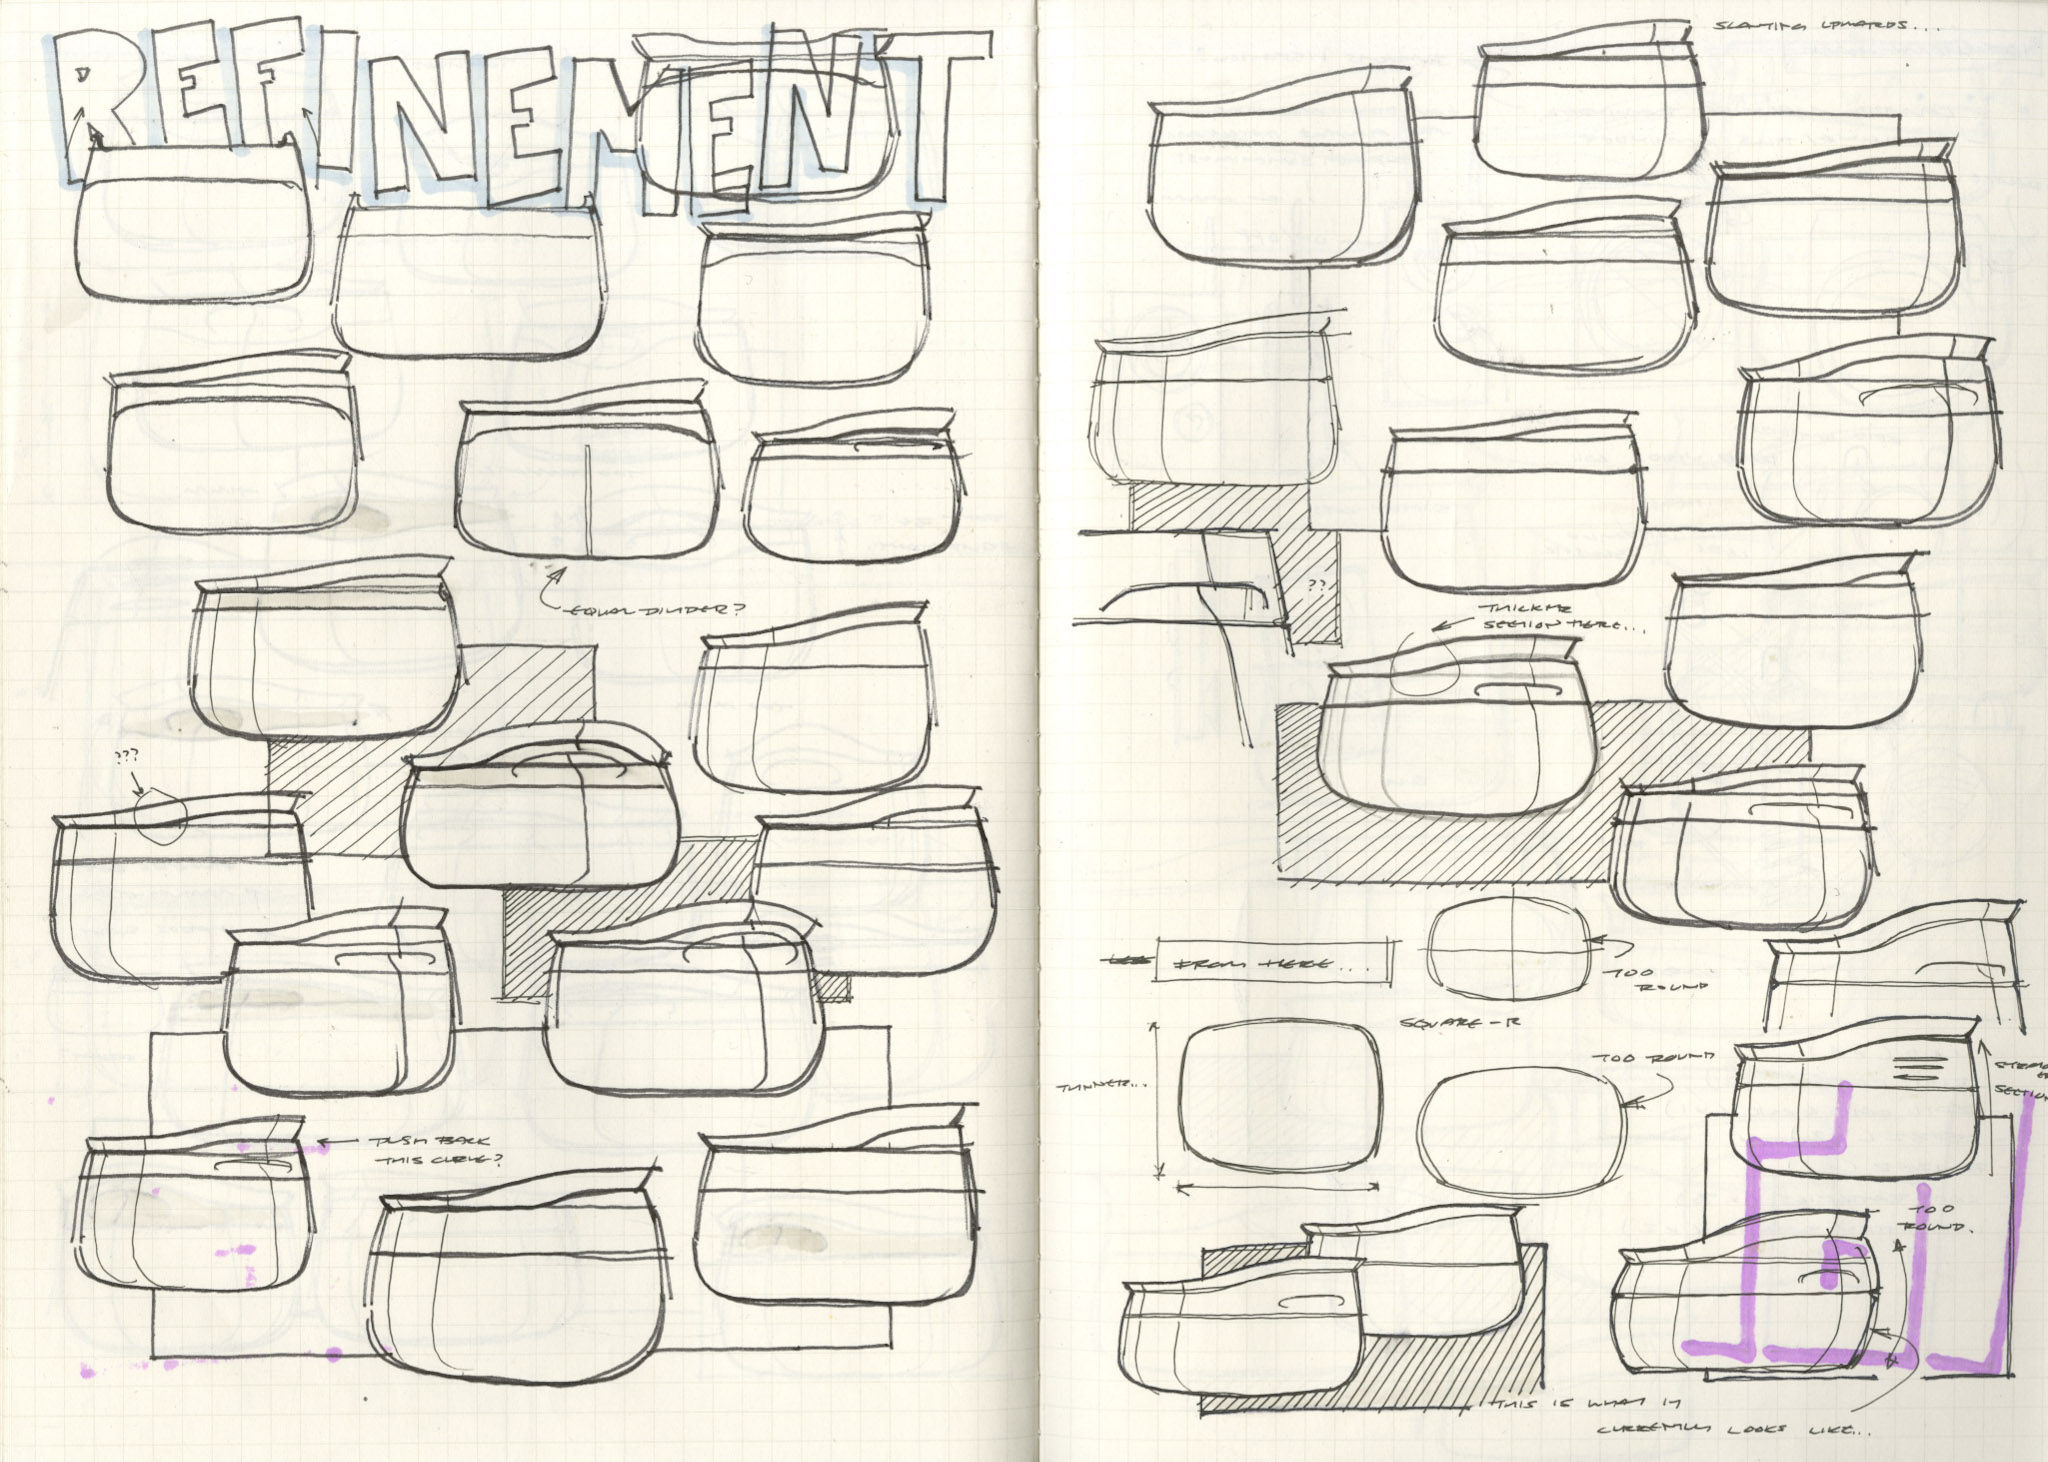 REFINEMENT
EQUAL DIVIDER?
???
PUSH BACK
THIS CURVE?
SLANTING UPWARDS...
??
THICKNE
SECTION HERE...
FROM HERE...
TOO
ROUND
SQUARE-R
TOO ROUND
SECTION
TOO
ROUND.
THIS IS WHAT IT
CURRENTLY LOOKS LIKE...